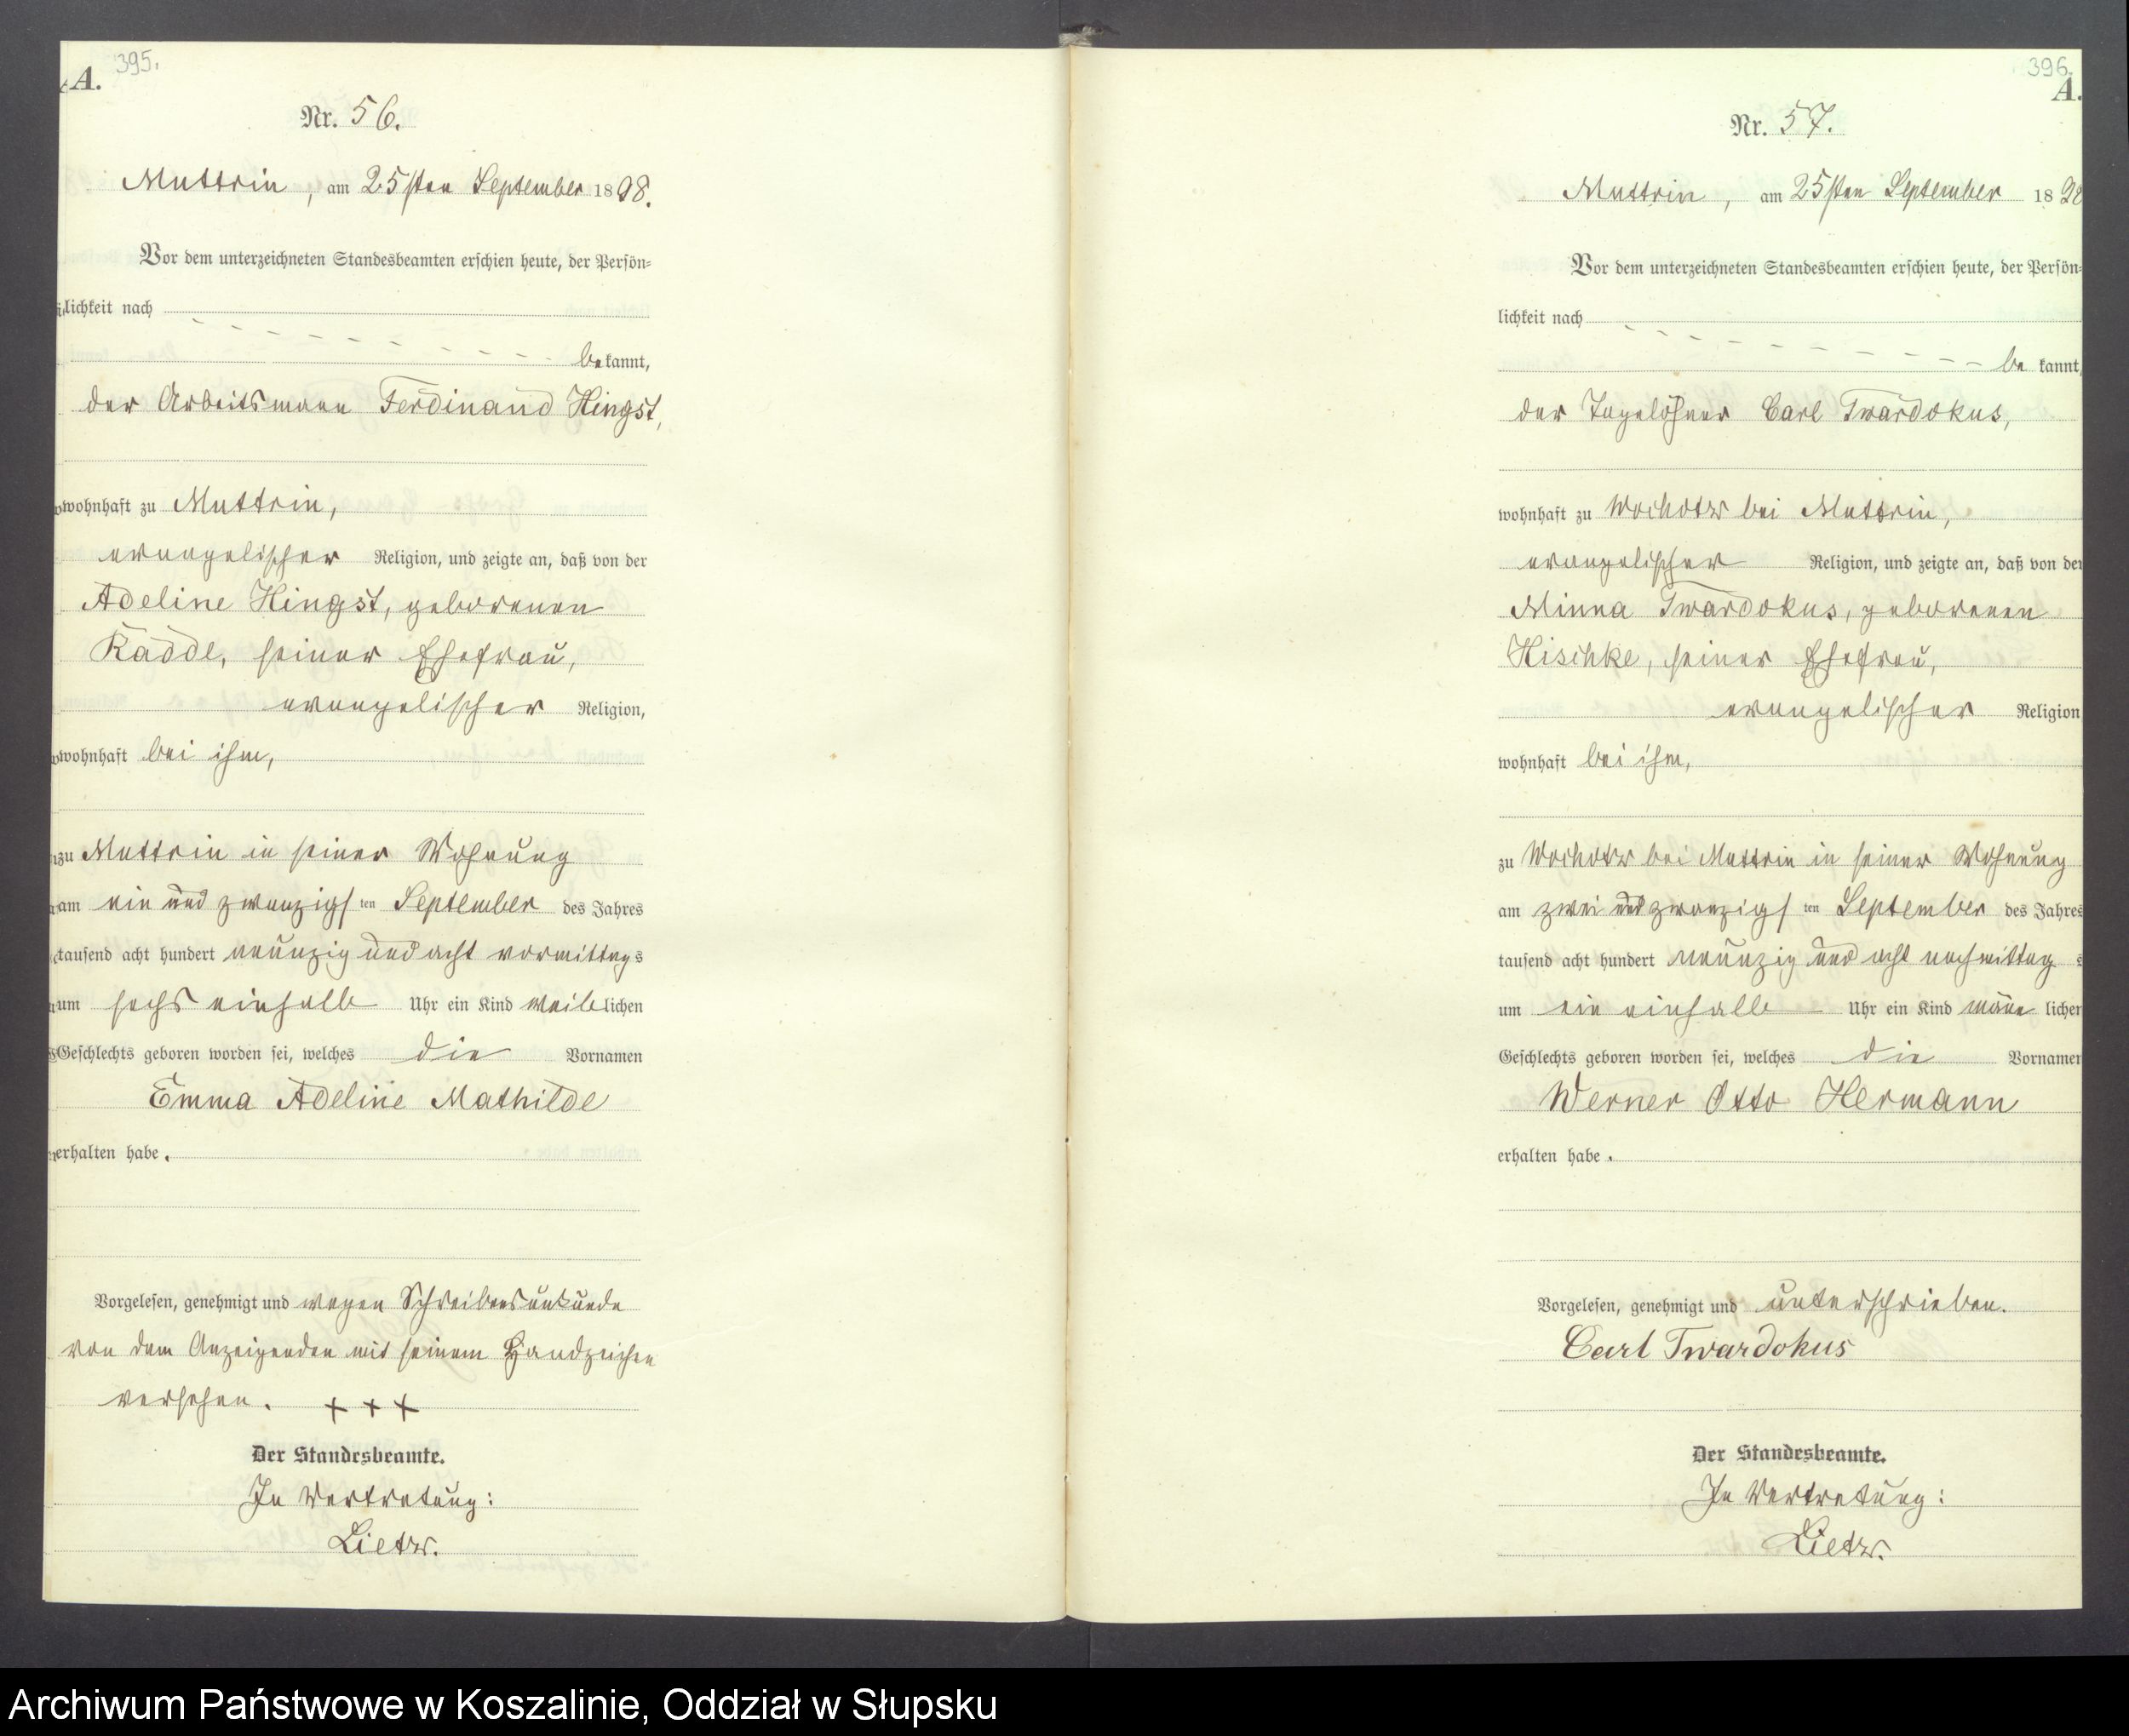 395.
A.
Nr. 56.
Muttrin, am 25sten September 1898.
Vor dem unterzeichneten Standesbeamten erschien heute, der Persön=
lichkeit nach
bekannt,
der Arbeitsmann Ferdinand Hingst,
wohnhaft zu Muttrin,
evangelischer Religion, und zeigte an, daß von der
Adeline Hingst, geborenen
Radde, seiner Ehefrau,
evangelischer Religion,
wohnhaft bei ihm,
zu Muttrin in seiner Wohnung
am ein und zwanzigsten September des Jahres
tausend acht hundert neunzig und acht vormittags
um sechs einhalb Uhr ein Kind weiblichen
Geschlechts geboren worden sei, welches die Vornamen
Emma Adeline Mathilde
erhalten habe.
Vorgelesen, genehmigt und wegen Schreibensunkunde
von dem Anzeigenden mit seinem Handzeichen
versehen. + + +
Der Standesbeamte.
In Vertretung:
Lietz.
396.
A.
Nr. 57.
Muttrin, am 25sten September 1898
Vor dem unterzeichneten Standesbeamten erschien heute, der Persön=
lichkeit nach
be kannt,
der Tagelöhner Carl Twardokus,
wohnhaft zu Wochotz bei Muttrin,
evangelischer Religion, und zeigte an, daß von der
Minna Twardokus, geborenen
Hischke, seiner Ehefrau,
evangelischer Religion
wohnhaft bei ihm,
zu Wochotz bei Muttrin in seiner Wohnung
am zwei und zwanzigsten September des Jahres
tausend acht hundert neunzig und acht nachmittags
um ein einhalb Uhr ein Kind männlichen
Geschlechts geboren worden sei, welches die Vornamen
Werner Otto Hermann
erhalten habe.
Vorgelesen, genehmigt und unterschrieben.
Carl Twardokus
Der Standesbeamte.
In Vertretung:
Lietz.
Archiwum Państwowe w Koszalinie, Oddział w Słupsku